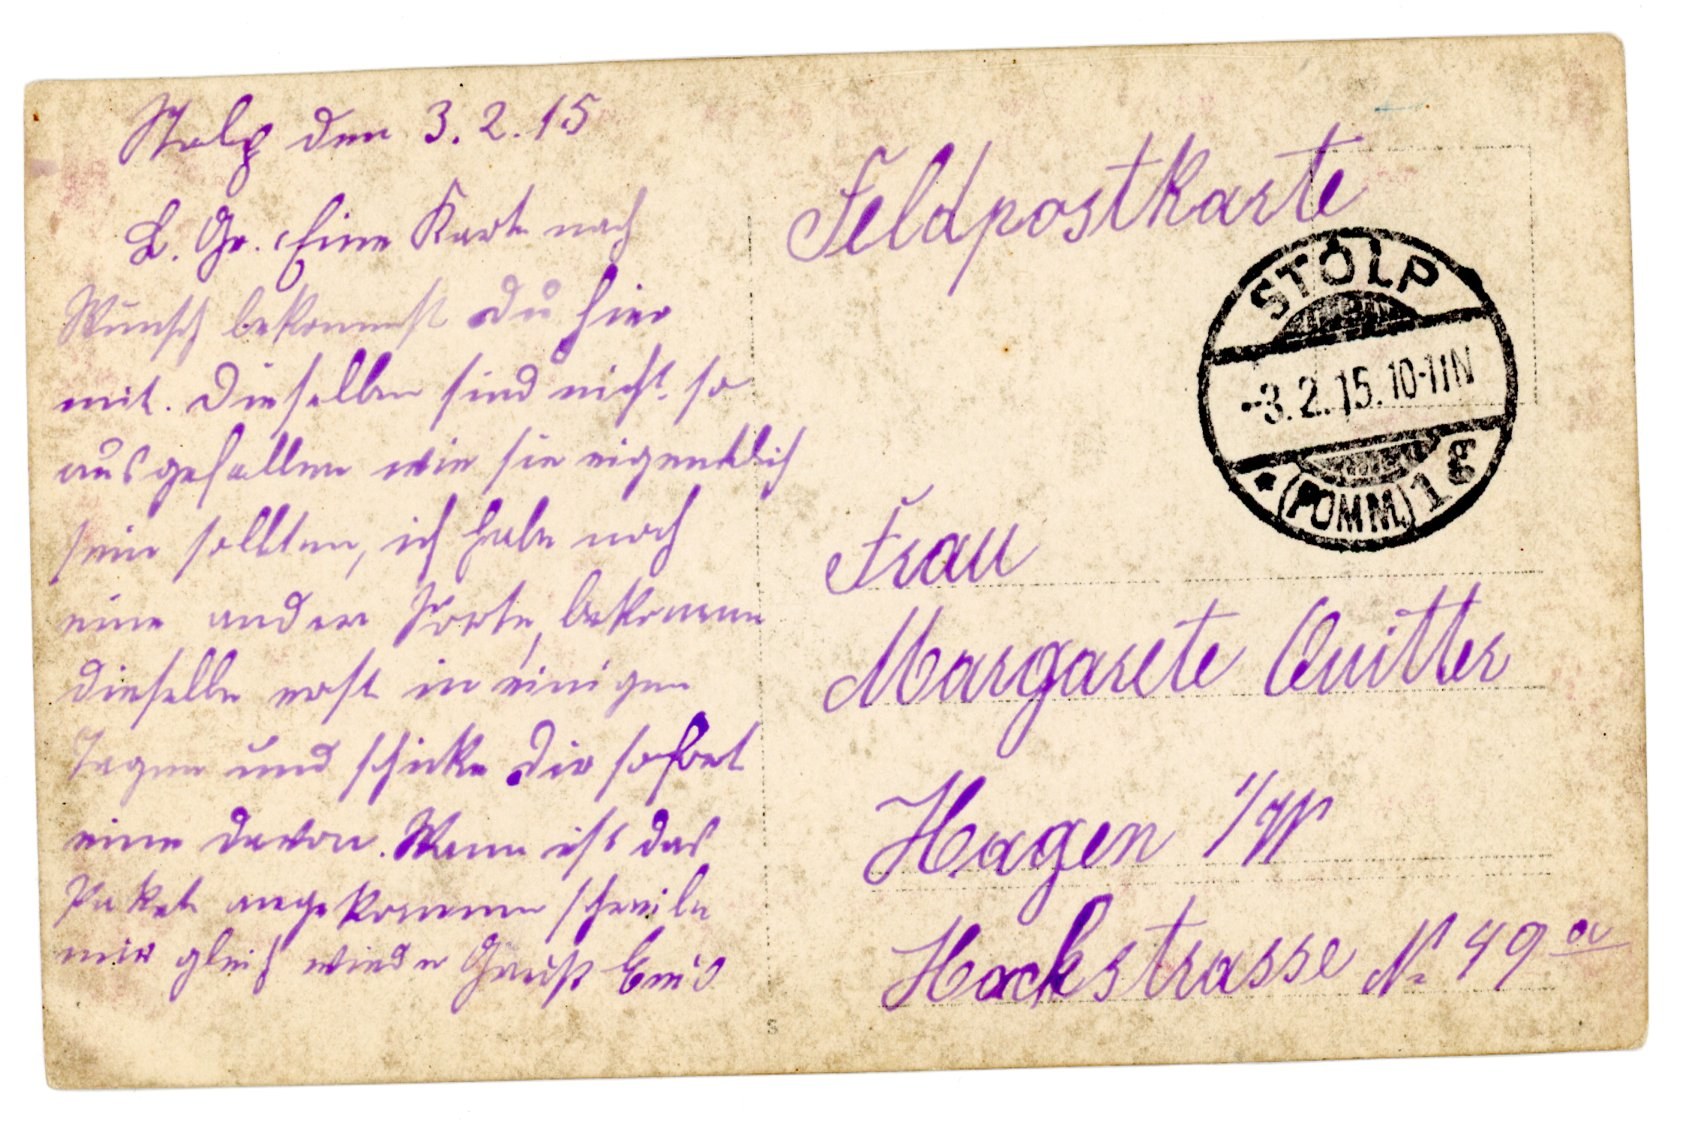 Stolp den 3.2.15
L. Gr. Eine Karte nach
Wunsch bekommst Du hier
mit. Dieselben sind nicht so
ausgefallen wie sie eigentlich
sein sollten, ich habe noch
eineander Sorte, bekomme
dieselbe erst in einigen
Tagen und schicke Dir sofort
eine davon. Wenn ist das
Paket angekommen schreibe
mir gleich wieder Gruß
Feldpostkarte
STOLP
-3.2.15.10-11N
* (POMM.) 1g
Frau
Margarete Quitter
Hagen i/W
Hochstrasse № 49 a
S